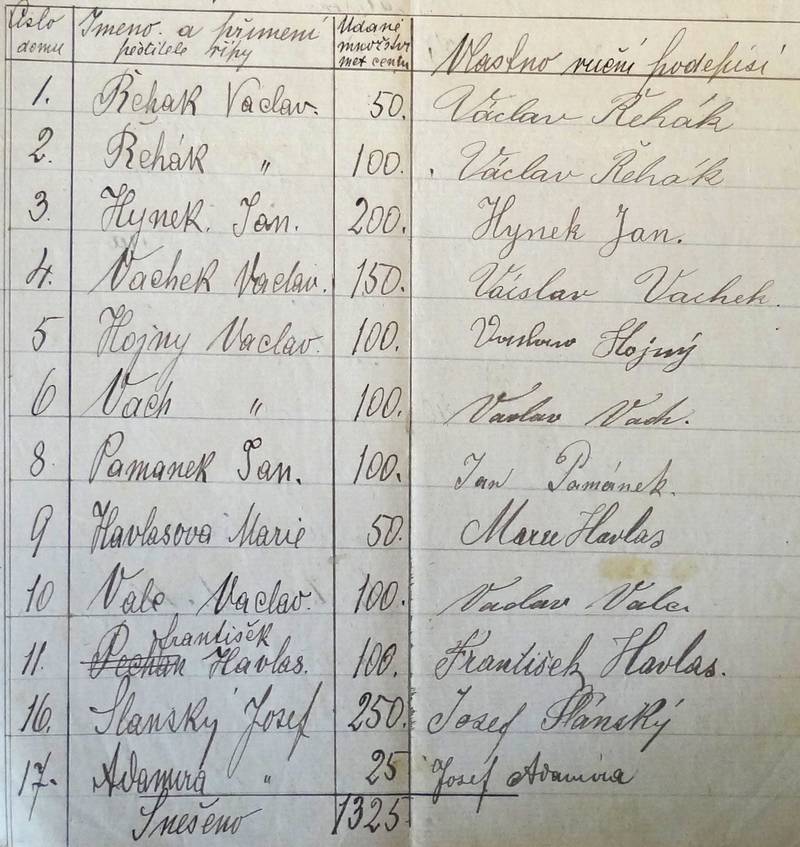 Číslo domu Jmeno a přimeni pěstitele řípy Udané množství met centu Vlastno ruční podepisi
1. Řehak Vaclav. 50. Václav Řehák
2. Řehák " 100. Václav Řehák
3. Hynek. Jan. 200. Hynek Jan.
4. Vachek Vaclav. 150. Václav Vachek.
5 Hojny Vaclav. 100. Hojný
6 Vach " 100. Vaclav Vach.
8. Pamanek Jan. 100. Jan Pamánek.
9 Havlasova Marie 50. Marie Havlas
10 Valc Vaclav. 100. Vaclav Valc
františek
11. Pechan Havlas. 100. František Havlas.
16. Slanský Josef 250. Josef Slánský
17. Adamira " 25 Josef Adamira
Snešeno 1325.